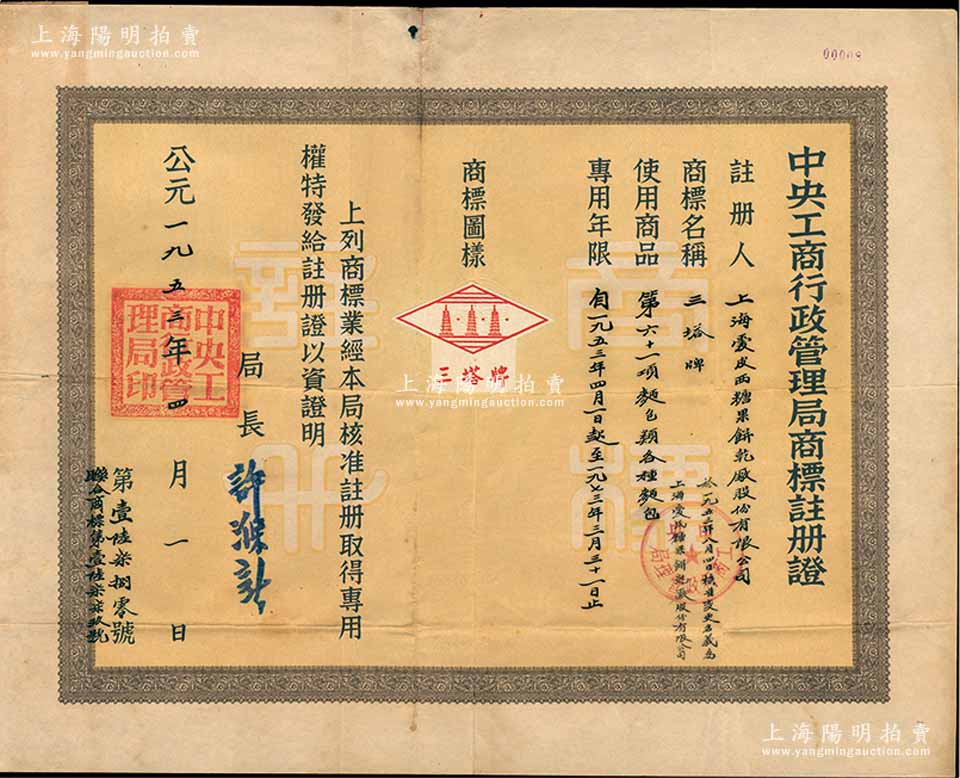 上海陽明拍賣
www.yangmingauction.com
中央工商行政管理局商標註册證
註册人 上海愛皮西糖果餅乾廠股份有限公司
商標名稱 三塔牌
使用商品 第六十一項麵包類各種麵包
專用年限 自一九五三年四月一日起至一九七三年三月三十一日止
商標圖樣
三塔牌
上列商標業經本局核准註册取得專用
權特發給註册證以資證明
局長 許滌新
公元一九五三年四月一日
中央工商行政管理局印
第壹陸柒捌零號
聯合商標第壹陸柒柒玖號
上海陽明拍賣
www.yangmingauction.com
上海陽明拍賣
www.yangmingauction.com